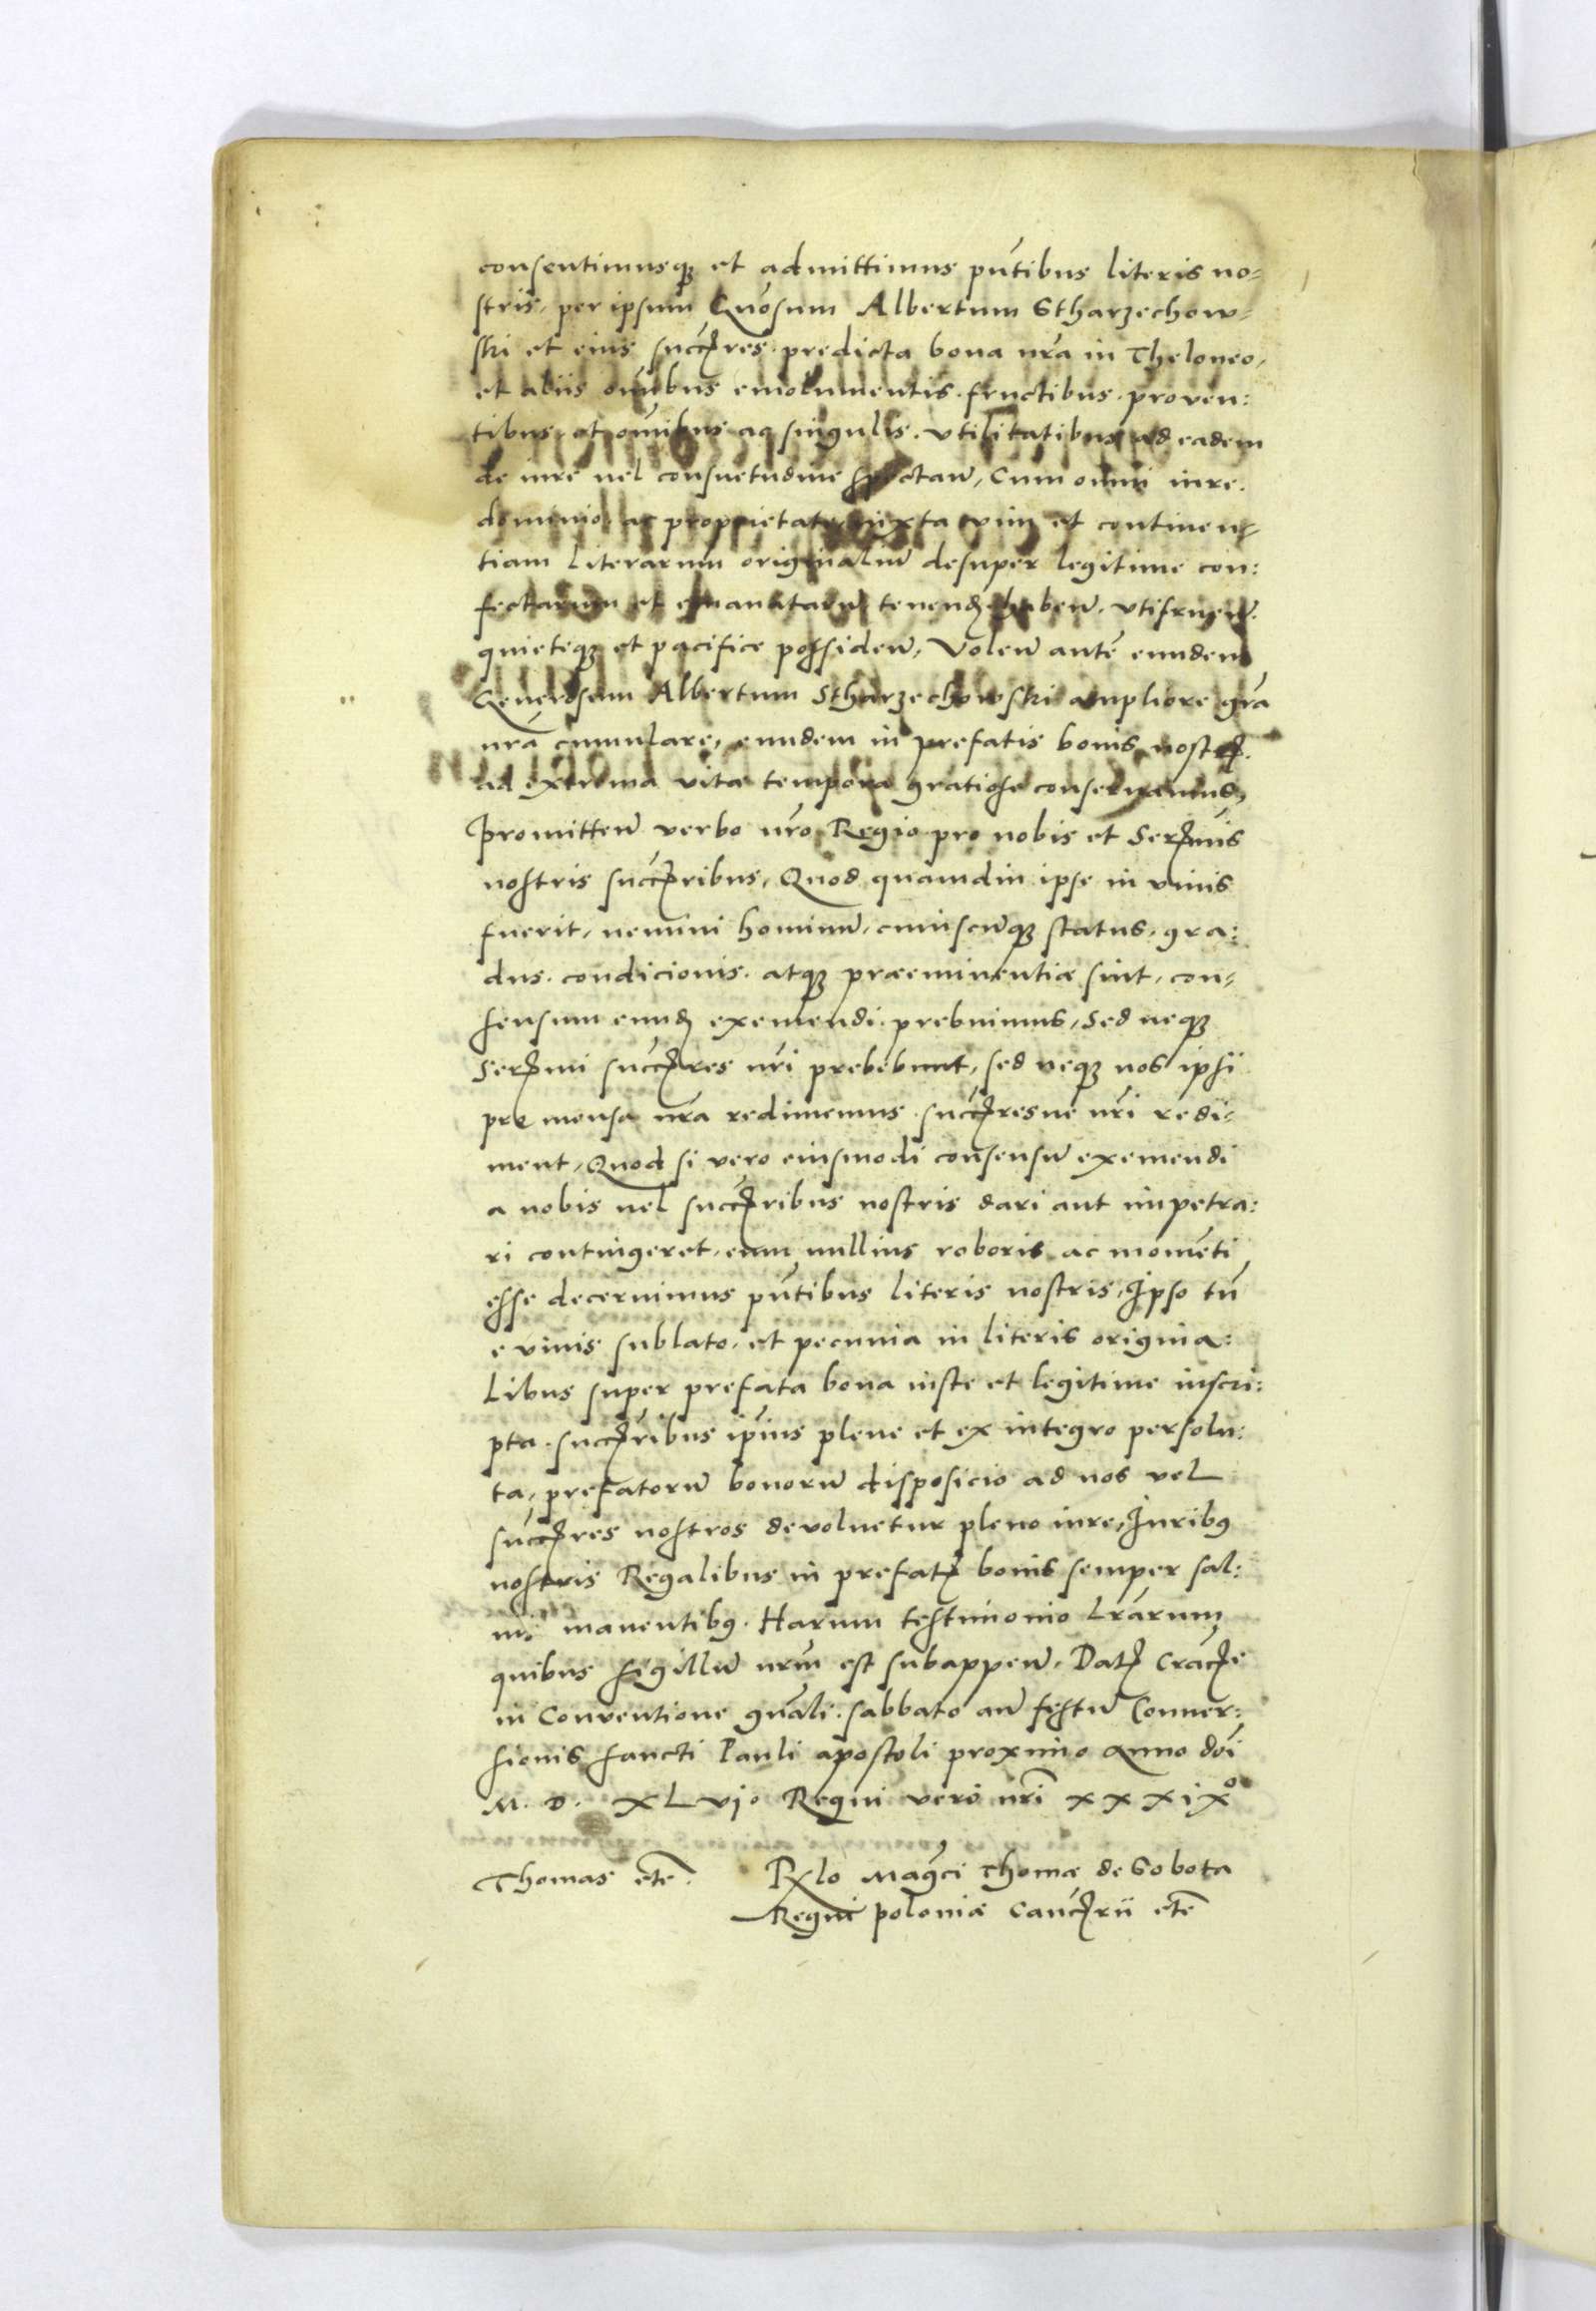 consentimusq₃ et admittimus pn̄tibus literis no=
stris, per ipsum Gn̄osum Albertum Stharzechow=
ski et eius succ̄res, predicta bona nr̄a in Theloneo,
et aliis om̄ibus emolumentis, fructibus, proven:
tibus, et om̄ibus ac singulis, vtilitatibus ad eadem
de iure vel consuetudine spectan̄, Cum omni iure,
dominio, ac proprietate iuxta vim et continen=
tiam literarum originaliū desuper legitime con:
fectarum et emanatarū tenend̄ habend̄, vtifruend̄,
quieteq₃ et pacifice possidend̄, Volen̄ autē eundem
Generosum Albertum Stharzechowski ampliore gr̄a
nr̄a cumulare, eundem in prefatis bonis nostr̄
ad extrema vitæ tempora gratiose conservamus,
Promitten̄ verbo nr̄o Regio pro nobis et Ser̄mis
nostris succ̄ribus, Quod quamdiu ipse in vivis
fuerit, nemini hominū, cuiuscūq₃ status, gra:
dus, condicionis, atq₃ præeminentiæ sint, con=
sensum eund̄ exemendi prebuimus, Sed neq₃
Ser̄mi succ̄res nr̄i prebebunt, sed neq₃ nos ipsi
pro mensa nr̄a redimemus, succ̄resue nr̄i redi=
ment, Quod si vero eiusmodi consensū exemendi
a nobis vel succ̄ribus nostris dari aut impetra:
ri contingeret, eum nullius roboris ac momēti
esse decernimus pn̄tibus literis nostris, Ipso tn̄
e vivis sublato, et pecunia in literis origina:
libus super prefata bona iuste et legitime inscri:
pta, succ̄ribus ip̄ius plene et ex integro persolu:
ta, prefatorū bonorū disposicio ad nos vel
succ̄res nostros devoluetur pleno iure, Iurib₉
nostris Regalibus in prefat̄ bonis semper sal:
uis manentib₉. Harum testimonio Lr̄arum
quibus sigillū nr̄m est subappen̄. Dat̄ Crac̄e
in Conventione gn̄ali, sabbato an̄ festū Conver:
sionis sancti Pauli apostoli proximo Anno dn̄i
M. D. XLvjo Regni vero nr̄i xxxixº
Thomas etc̄. Rl̄o Maḡci Thomæ de Sobota
Regni poloniæ Canc̄rii etc̄